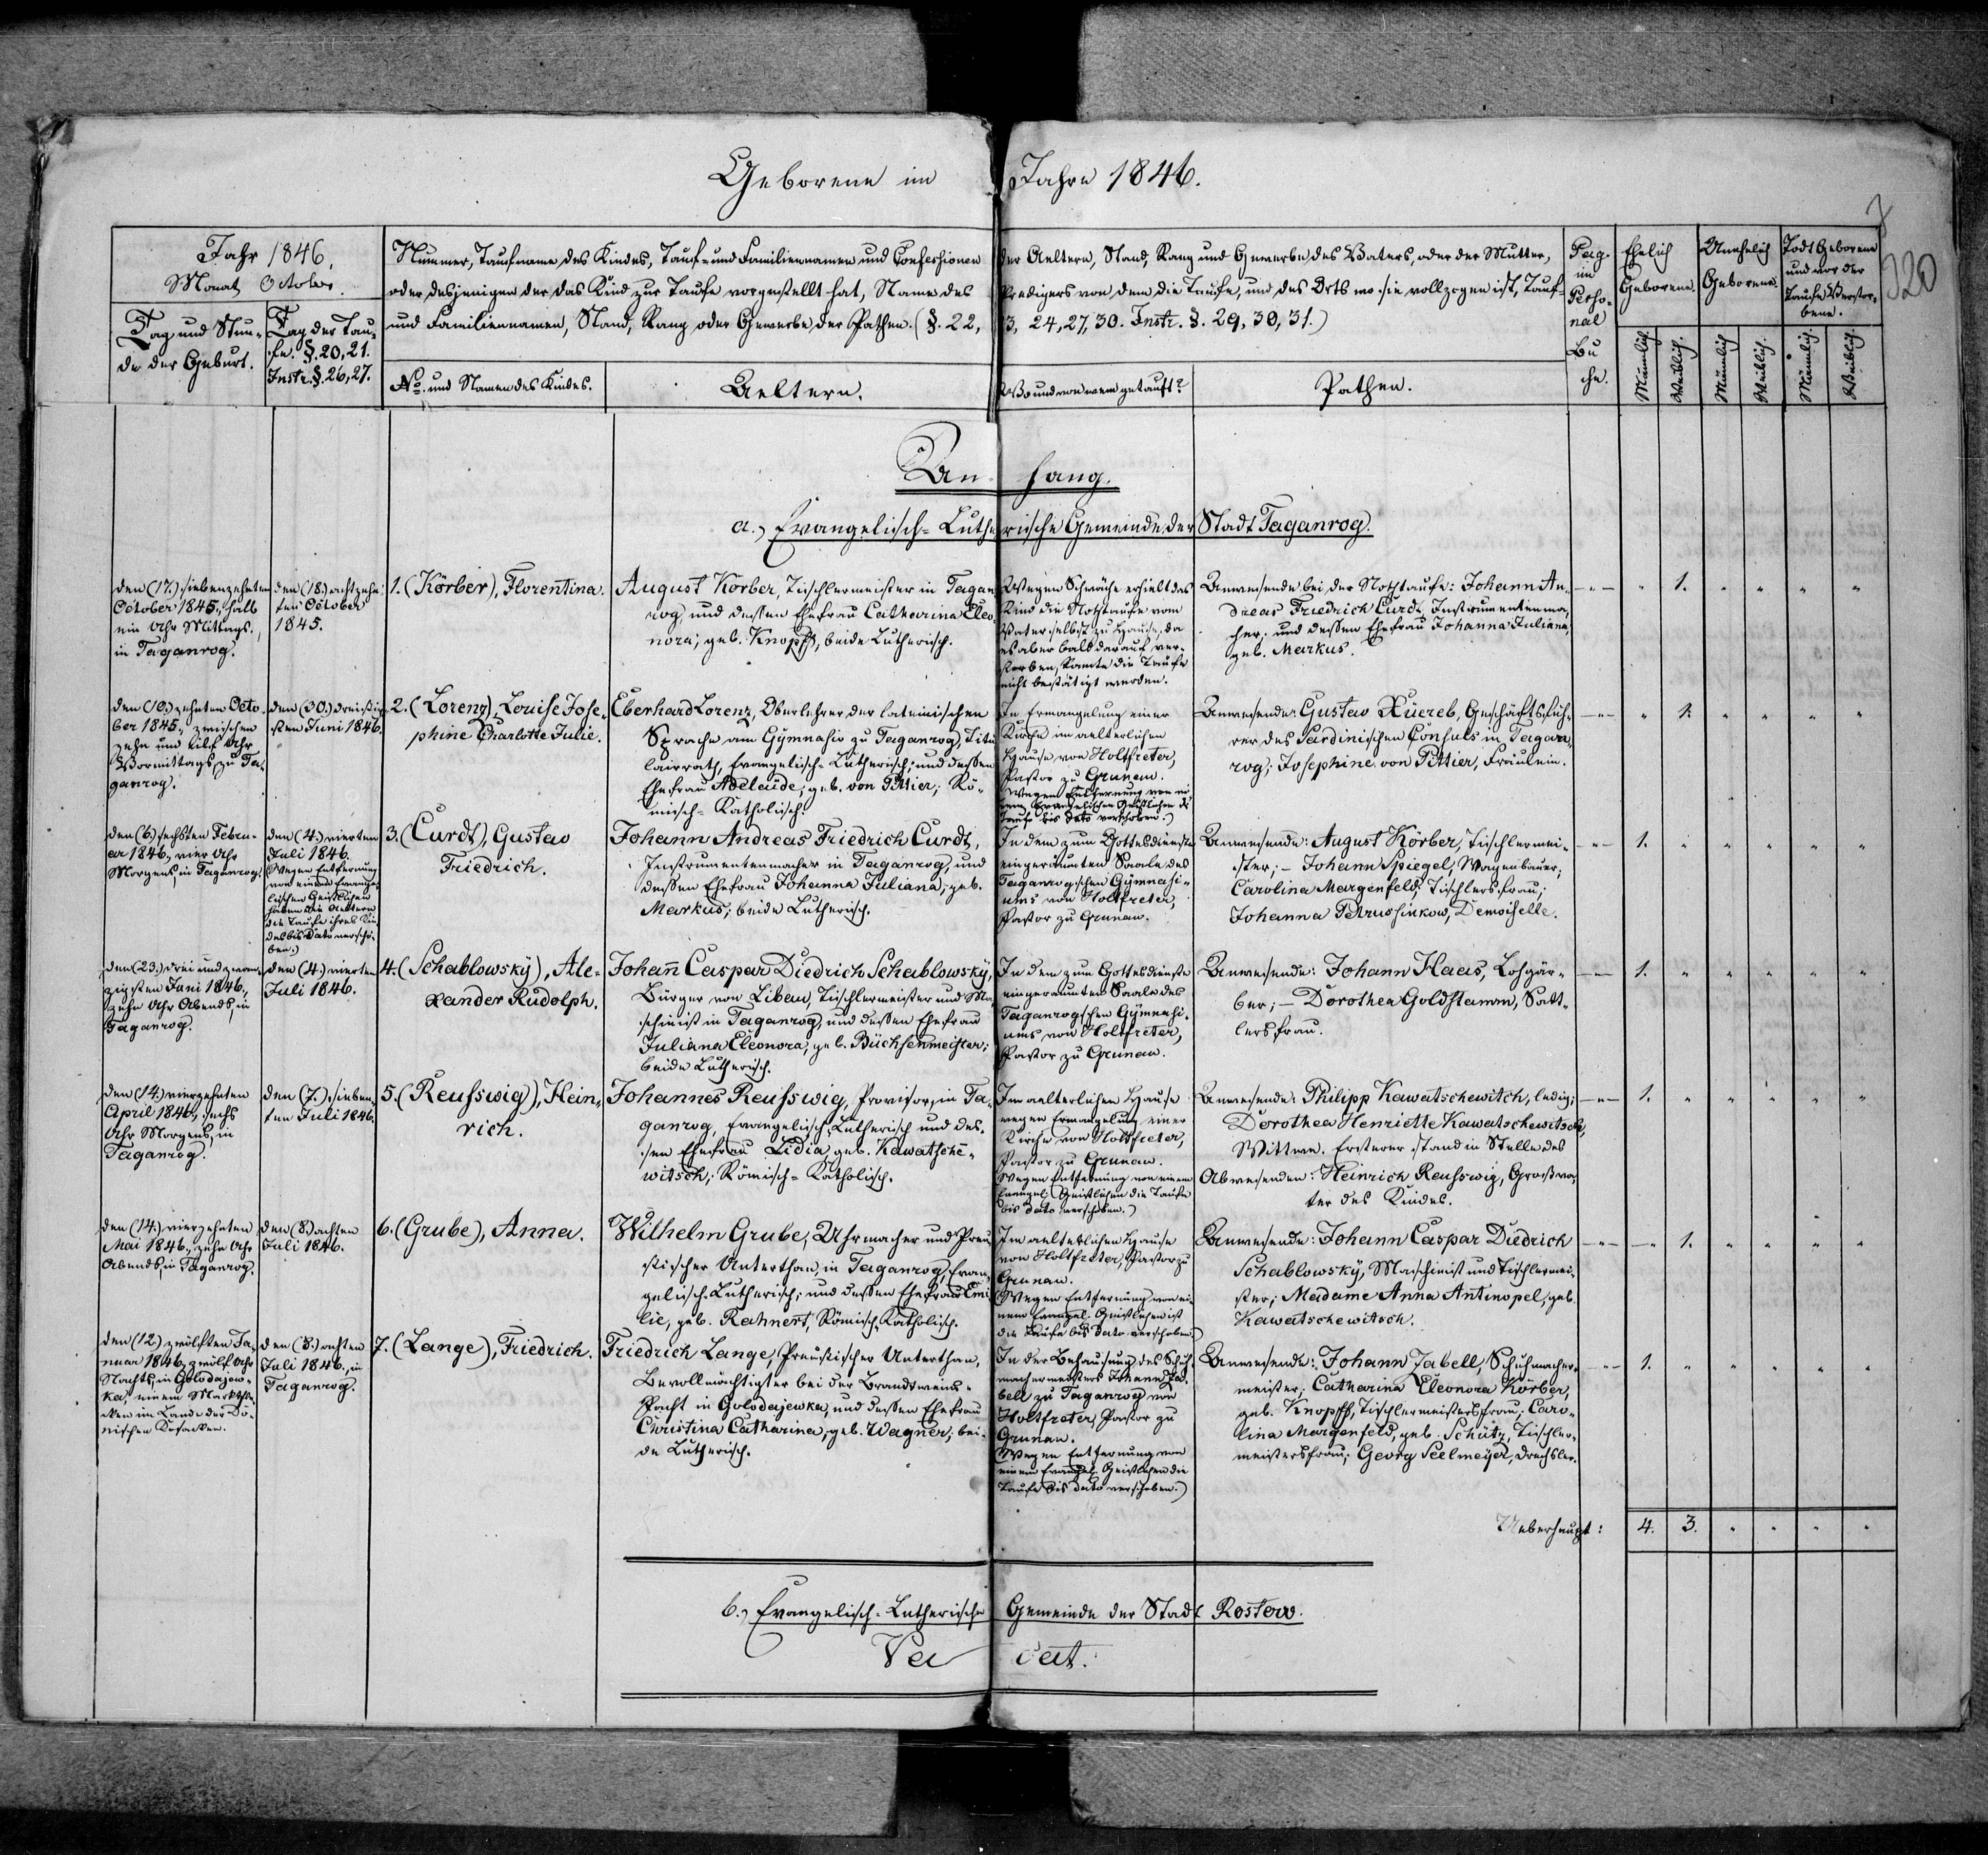 Geborene im Jahre 1846.
Jahr 1846.
Monat October.
Tag und Stun-
de der Geburt.
Tag der Tau-
fe. §. 20, 21.
Instr. §. 26, 27.
Nummer, Taufname des Kindes, Tauf- und Familiennamen und Confessionen der Aeltern, Stand, Rang und Gewerbe des Vaters, oder der Mutter,
oder desjenigen der das Kind zur Taufe vorgestellt hat, Name des Predigers von dem die Taufe, und des Orts wo sie vollzogen ist, Tauf-
und Familiennamen, Stand, Rang oder Gewerbe der Pathen. (§. 22, 23, 24, 27, 30. Instr. §. 29, 30, 31.)
No. und Namen des Kindes.
Aeltern.
Wo und von wem getauft?
Pathen.
Pag.
im
Perso-
nal
Bu
che.
Ehelich
Geborene.
Unehelich
Geborene.
Todt Geborene
und vor der
Taufe Verstor-
bene.
Männlich.
Weiblich.
Männlich
Weiblich.
Männlich.
Weiblich.
320
Anhang.
a.) Evangelisch-Lutherische Gemeinde der Stadt Taganrog.
den (17.) siebenzehnten
October 1845, halb
ein Uhr Mittags,
in Taganrog.
den (18.) achtzehn-
ten October
1845.
1. (Körber), Florentina.
August Körber, Tischlermeister in Tagan-
rog, und dessen Ehefrau Catharina Eleo-
nora, geb. Knopff, beide Lutherisch.
Wegen Schwäche erhielt das
Kind die Nothtaufe vom
Vater selbst zu Hause, da
es aber bald darauf ver-
storben, konnte die Taufe
nicht bestätigt werden.
Anwesende bei der Nothtaufe: Johann An-
dreas Friedrich Curdt, Instrumentenma-
cher, und dessen Ehefrau Johanna Juliana,
geb. Markus.
" 1. " " " "
den (10.) zehnten Octo-
ber 1845, zwischen
zehn und eilf Uhr
Vormittags, zu Ta-
ganrog.
den (30.) dreißig-
sten Juni 1846.
2. (Lorenz), Louise Jose-
phine Charlotte Julie.
Eberhard Lorenz, Oberlehrer der lateinischen
Sprache am Gymnasio zu Taganrog, Titu-
lairrath, Evangelisch-Lutherisch, und dessen
Ehefrau Adelaide, geb. von Pittier, Rö-
misch-Katholisch.
In Ermangelung einer
Kirche im aelterlichen
Hause von Holtfreter,
Pastor zu Grunau.
(Wegen Entfernung von ei-
nem Evangelischen Geistlichen die
Taufe bis dato verschoben.)
Anwesende: Gustav Xüereb, Geschäftsfüh-
rer des Sardinischen Consuls in Tagan-
rog; Josephine von Pittier, Fräulein.
" 1. " " " "
den (6.) sechsten Febru-
ar 1846, vier Uhr
Morgens, in Taganrog.
den (4.) vierten
Juli 1846.
(Wegen Entfernung
von einem Evange-
lischen Geistlichen
haben die Aeltern
die Taufe ihres Kin-
des bis dato verscho-
ben.)
3. (Curdt), Gustav
Friedrich.
Johann Andreas Friedrich Curdt,
Instrumentenmacher in Taganrog, und
dessen Ehefrau Johanna Juliana, geb.
Markus, beide Lutherisch.
In dem zum Gottesdienste
eingeräumten Saale des
Taganrogschen Gymnasi-
ums von Holtfreter,
Pastor zu Grunau.
Anwesende: August Körber, Tischlermei-
ster; – Johann Spiegel, Wagenbauer;
Carolina Margenfeld, Tischlersfrau;
Johanna Petrussinkow, Demoiselle.
1. " " " " "
den (23.) drei und zwan-
zigsten Juni 1846,
zehn Uhr Abends, in
Taganrog.
den (4.) vierten
Juli 1846.
4. (Schablowsky), Ale-
xander Rudolph.
Johann Caspar Diedrich Schablowsky,
Bürger von Libau, Tischlermeister und Ma-
schinist in Taganrog, und dessen Ehefrau
Juliana Eleonora, geb. Büchsenmeister;
beide Lutherisch.
In dem zum Gottesdienste
eingeräumten Saale des
Taganrogschen Gymnasi-
ums von Holtfreter,
Pastor zu Grunau.
Anwesende: Johann Haas, Lohgär-
ber; – Dorothea Goldstamm, Satt-
lersfrau.
1. " " " " "
den (14.) vierzehnten
April 1846, sechs
Uhr Morgens, in
Taganrog.
den (7.) sieben-
ten Juli 1846.
5. (Reusswig), Hein-
rich.
Johannes Reusswig, Provisor in Ta-
ganrog, Evangelisch-Lutherisch und des-
sen Ehefrau Lidia, geb. Kawatsche-
witsch, Römisch-Katholisch.
Im aelterlichen Hause
wegen Ermangelung einer
Kirche von Holtfreter,
Pastor zu Grunau.
(Wegen Entfernung von einem
Evangel. Geistlichen die Taufe
bis dato verschoben.)
Anwesende: Philipp Kawatschewitch, ledig;
Dorothea Henriette Kawatschewitsch,
Wittwe. Ersterer stand in Stelle des
Abwesenden: Heinrich Reusswig, Großva-
ter des Kindes.
1. " " " " "
den (14.) vierzehnten
Mai 1846, zehn Uhr
Abends, in Taganrog.
den (8.) achten
Juli 1846.
6. (Grube), Anna.
Wilhelm Grube, Uhrmacher und Preu-
ßischer Unterthan, in Taganrog, Evan-
gelisch-Lutherisch; und dessen Ehefrau Emi-
lie, geb. Rahnert, Römisch-Katholisch.
Im aelterlichen Hause
von Holtfreter, Pastor zu
Grunau.
(Wegen Entfernung von ei-
nem Evangel. Geistlichen ist
die Taufe bis dato verschoben.)
Anwesende: Johann Caspar Diedrich
Schablowsky, Maschinist und Tischlermei-
ster; Madame Anna Antinopel, geb.
Kawatschewitsch.
" 1. " " " "
den (12.) zwölften Ja-
nuar 1846, zwölf Uhr
Nachts, in Golodajew-
ka, einem Marktfle-
cken im Lande der Do-
nischen Kosacken.
den (8.) achten
Juli 1846, in
Taganrog.
7. (Lange), Friedrich.
Friedrich Lange, Preußischer Unterthan,
Bevollmächtigter bei der Brandtweins-
Pacht in Golodajewka, und dessen Ehefrau
Christina Catharina, geb. Wagner; bei-
de Lutherisch.
In der Behausung des Schuh-
machermeisters Johann Ja-
bell zu Taganrog von
Holtfreter, Pastor zu
Grunau.
(Wegen Entfernung von
einem Evangel. Geistlichen die
Taufe bis dato verschoben.)
Anwesende: Johann Jabell, Schuhmacher-
meister; Catharina Eleonora Körber,
geb. Knopff, Tischlermeistersfrau; Caro-
lina Margenfeld, geb. Schütz, Tischler-
meistersfrau; Georg Seelmeyer, Drechsler.
1. " " " " "
Ueberhaupt: 4. 3. " " " "
b.) Evangelisch-Lutherische Gemeinde der Stadt Rostow.
Vacat.